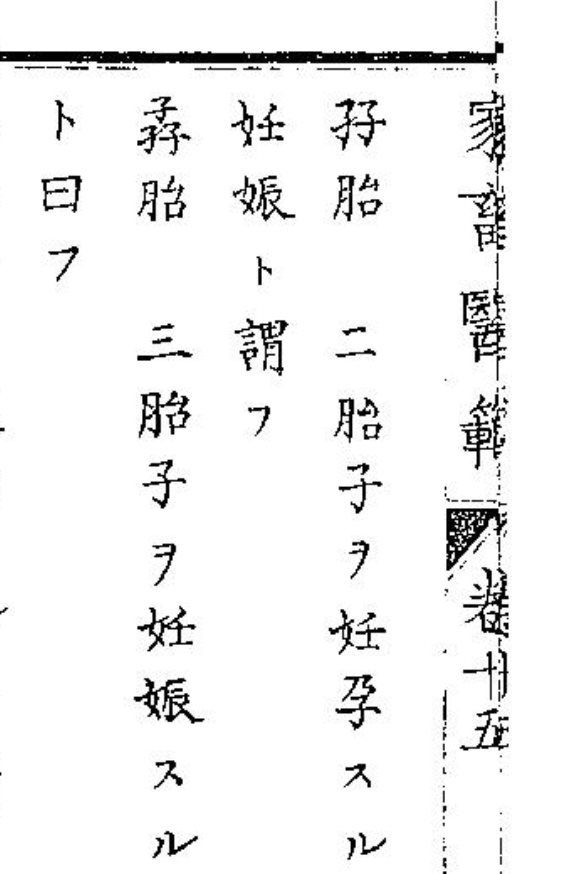 家畜醫範 卷廿五
孖胎 二胎子ヲ妊孕スル
妊娠ト謂フ
孨胎 三胎子ヲ妊娠スル
ト曰フ